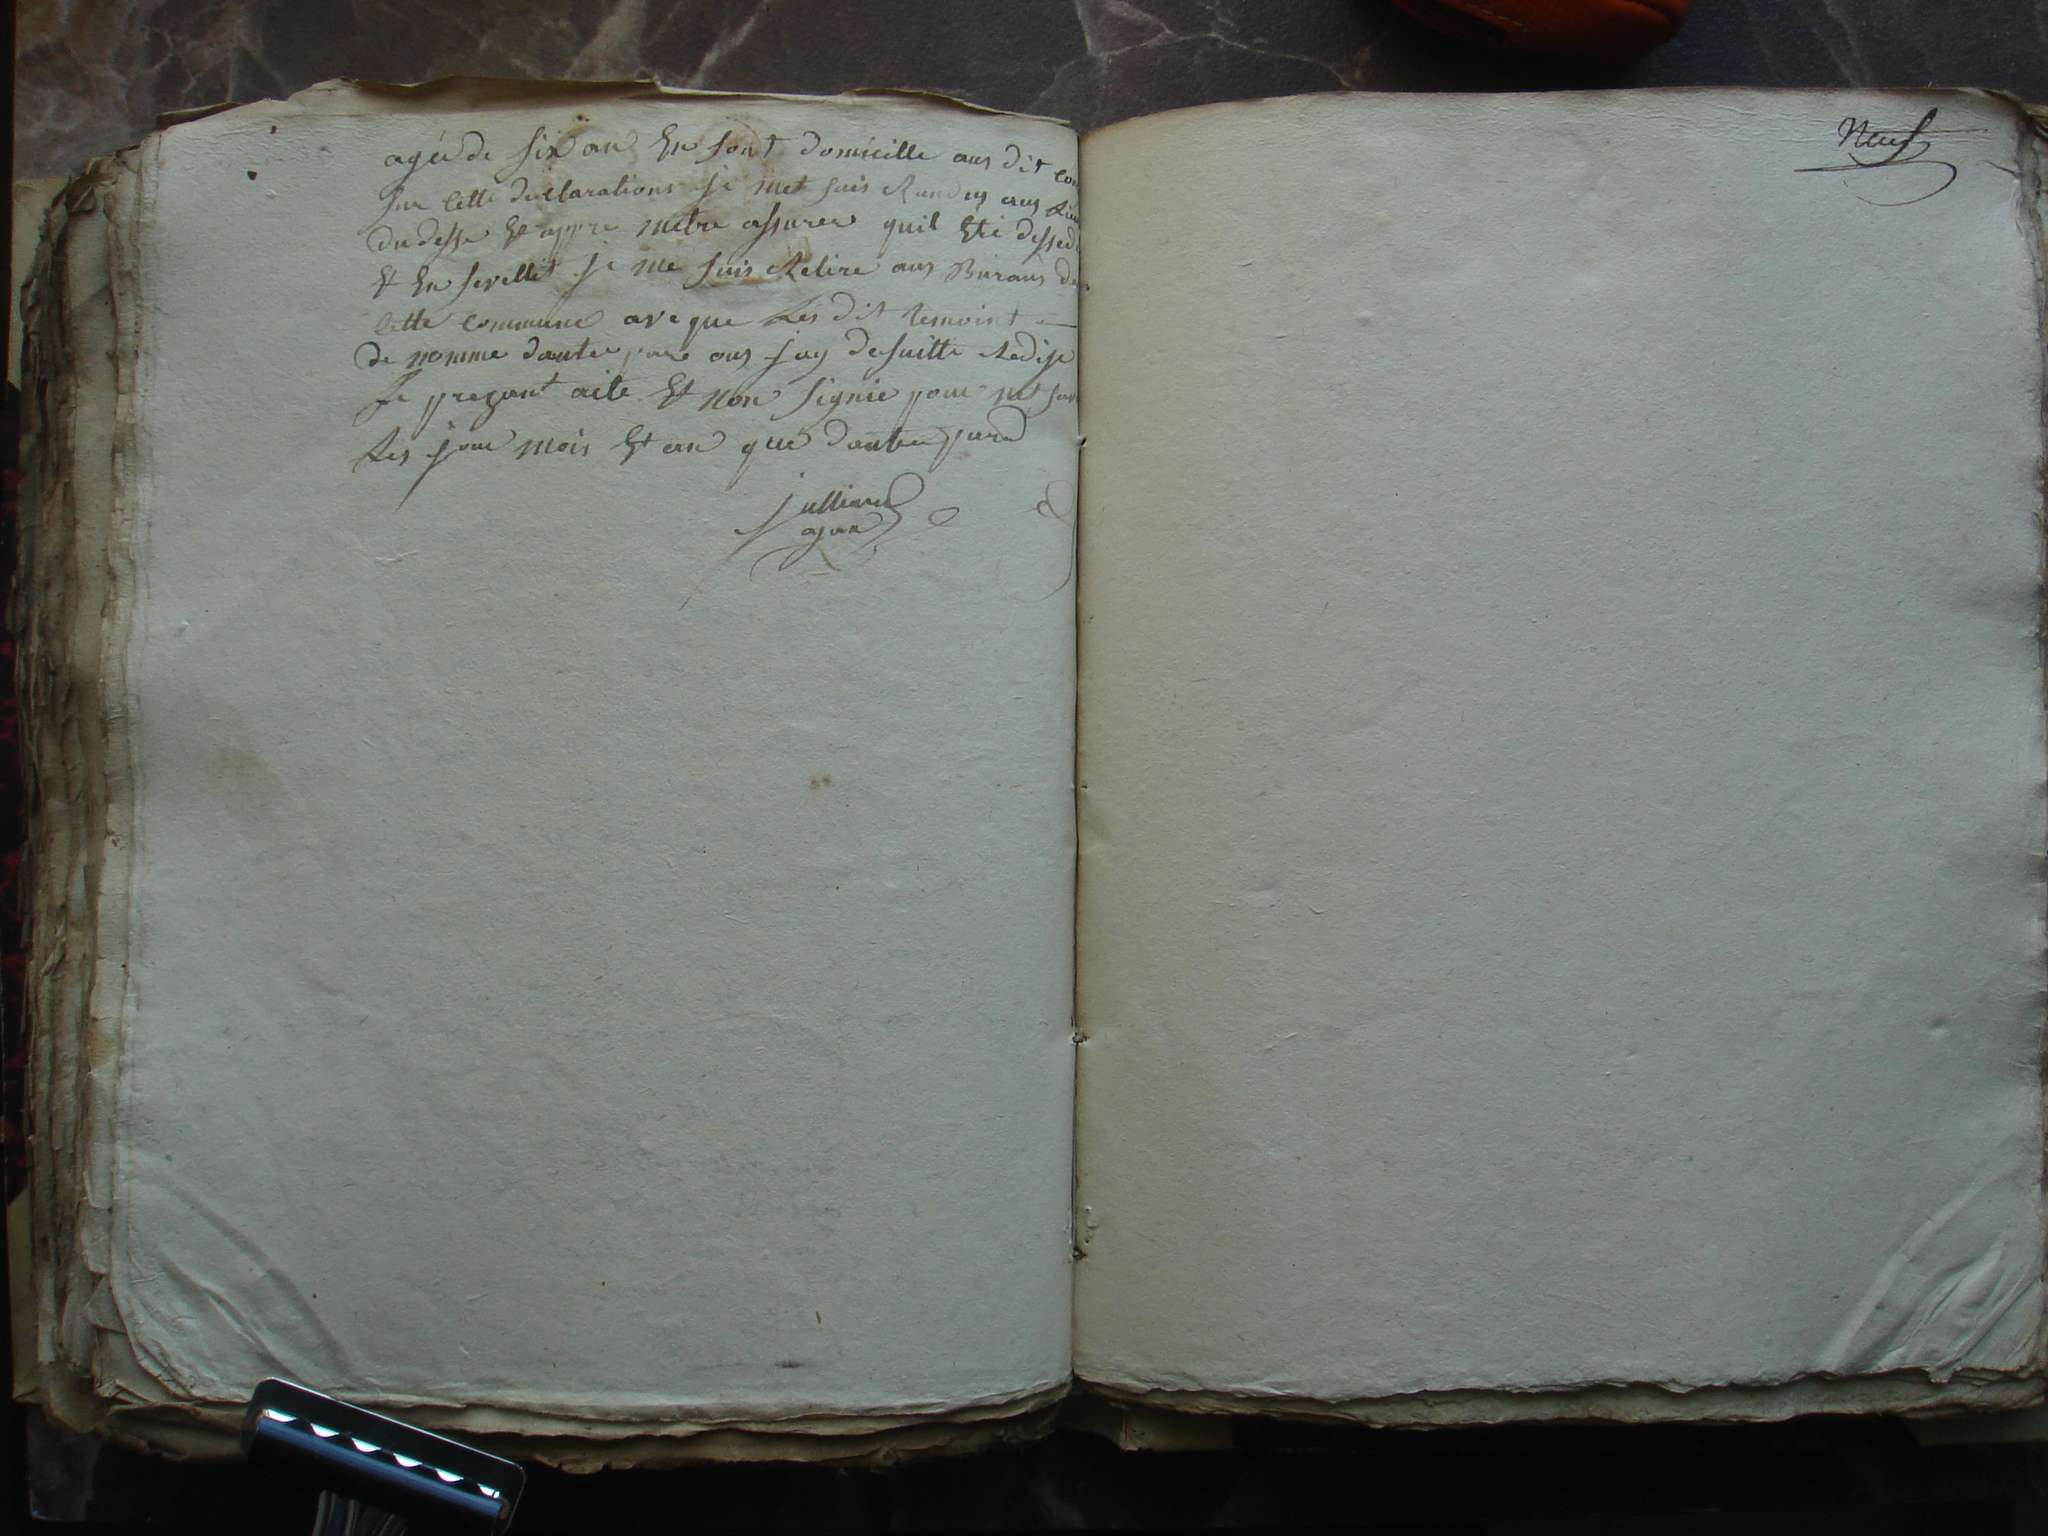 agée de six an En sont domicille aus dit
sur cette declarations je met suis Randuy aus
du desse Et appre metre assurer quil Etté
Et En sevellit je me suis Retire aus Buraus de
cette commune aveque Les dit temoint
de nomme dautre pare ous jay desuitte Redije
Le prezant aite Et non signie pour net
Les jour mois Et an que dautre pard
julliard
agan
Neuf